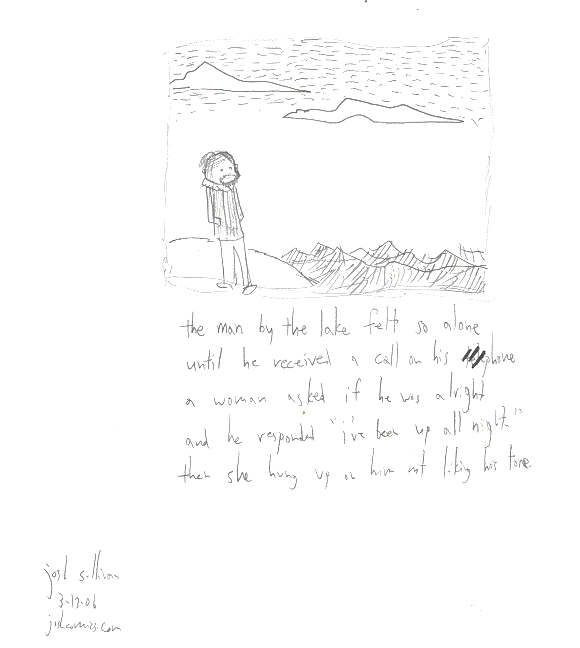 the man by the lake felt so alone
until he received a call on his phone
a woman asked if he was alright
and he responded "i've been up all night."
then she hung up on him not liking his tone.
josh sullivan
3-17-06
joshcomics.com